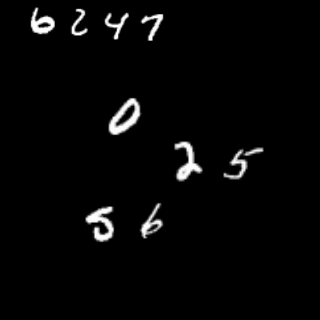 6 2 4 7
0
2 5
5 6